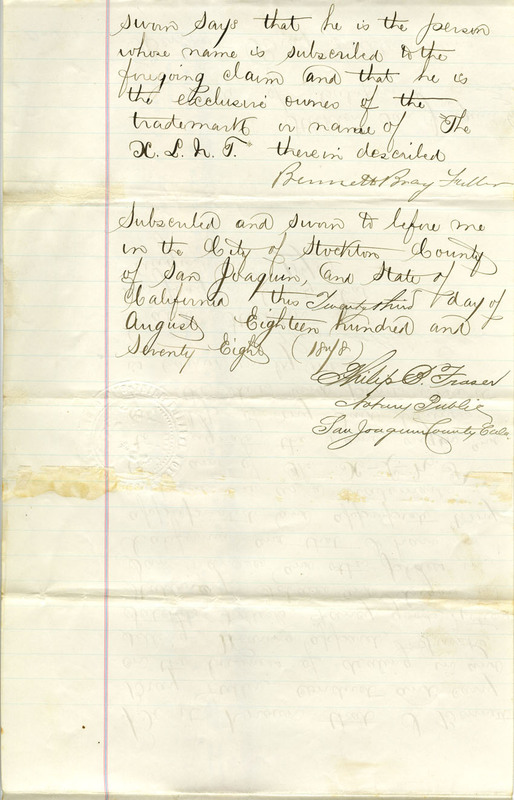 sworn says that he is the person
whose name is subscribed to the
foregoing claim and that he is
the exclusive owner of the
trademark or name of The
X. L. N. T. therein described
Bennett Bray Fuller
Subscribed and sworn to before me
in the City of Stockton County
of San Joaquin, and State of
California this Twenty third day of
August Eighteen hundred and
Seventy Eight (1878)
Philip B. Fraser
Notary Public
San Joaquin County Cala.